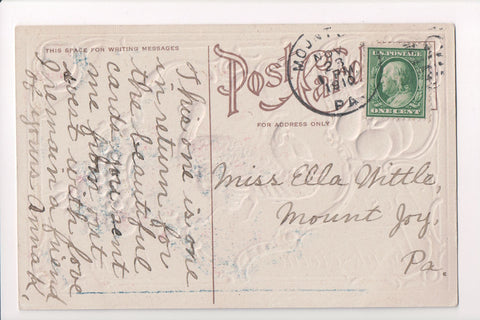 THIS SPACE FOR WRITING MESSAGES
Post Card
FOR ADDRESS ONLY
MOUNT
NOV
23
PM
1910
PA.
U.S. POSTAGE
ONE CENT
This one is one
in return for
the beautiful
cards you sent
me from out
west with love
I remain a friend
of yours Anna K.
Miss Ella Wittle,
Mount Joy.
Pa.